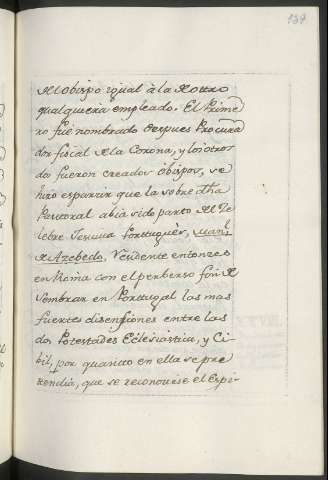 137
del obispo igual à la de otro
qualquiera empleado. El Prime
ro fué nombrado despues Procura
dor fiscal de la Corona, y los otros
dos fueron creados Obispos, se
hizo esparcir que la sobre dha
Pastoral abia sido parto del Ce
lebre Jesuita Portugués, Man.l
de Azebedo, Residente entonzes
en Roma con el perberso fin de
sembrar en Portugal las mas
fuertes disensiones entre las
dos Potestades Eclesiastica, y Ci
bil, por quanto en ella se pre
tendia, que se reconociese el Espi-